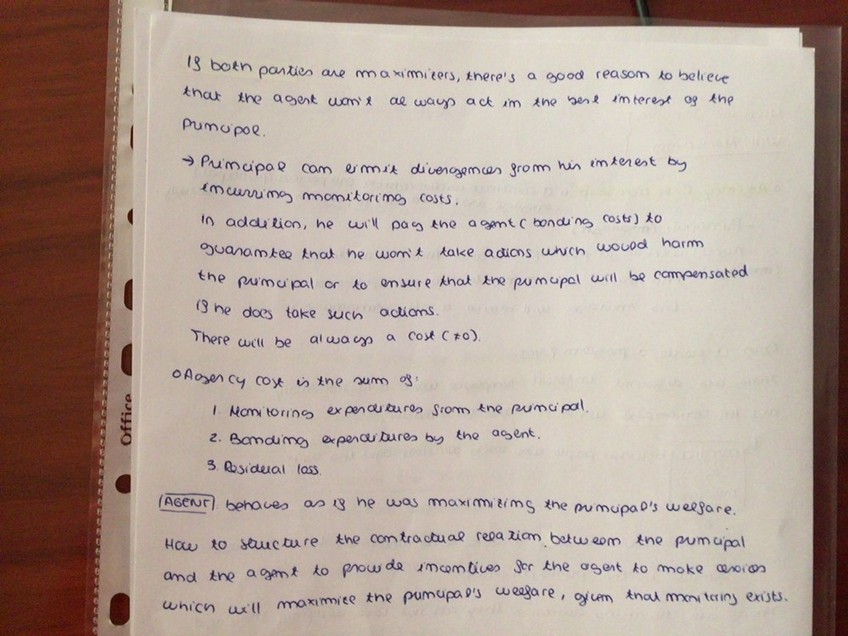 If both parties are maximizers, there's a good reason to believe
that the agent won't always act in the best interest of the
principal.
→ Principal can limit divergences from his interest by
incurring monitoring costs.
In addition, he will pay the agent (bonding costs) to
guarantee that he won't take actions which would harm
the principal or to ensure that the principal will be compensated
if he does take such actions.
There will be always a cost (≠0).
o Agency cost is the sum of:
1. Monitoring expenditures from the principal.
2. Bonding expenditures by the agent.
3. Residual loss.
AGENT behaves as if he was maximizing the principal's welfare.
How to structure the contractual relation between the principal
and the agent to provide incentives for the agent to make choices
which will maximize the principal's welfare, given that monitoring exists.
Office